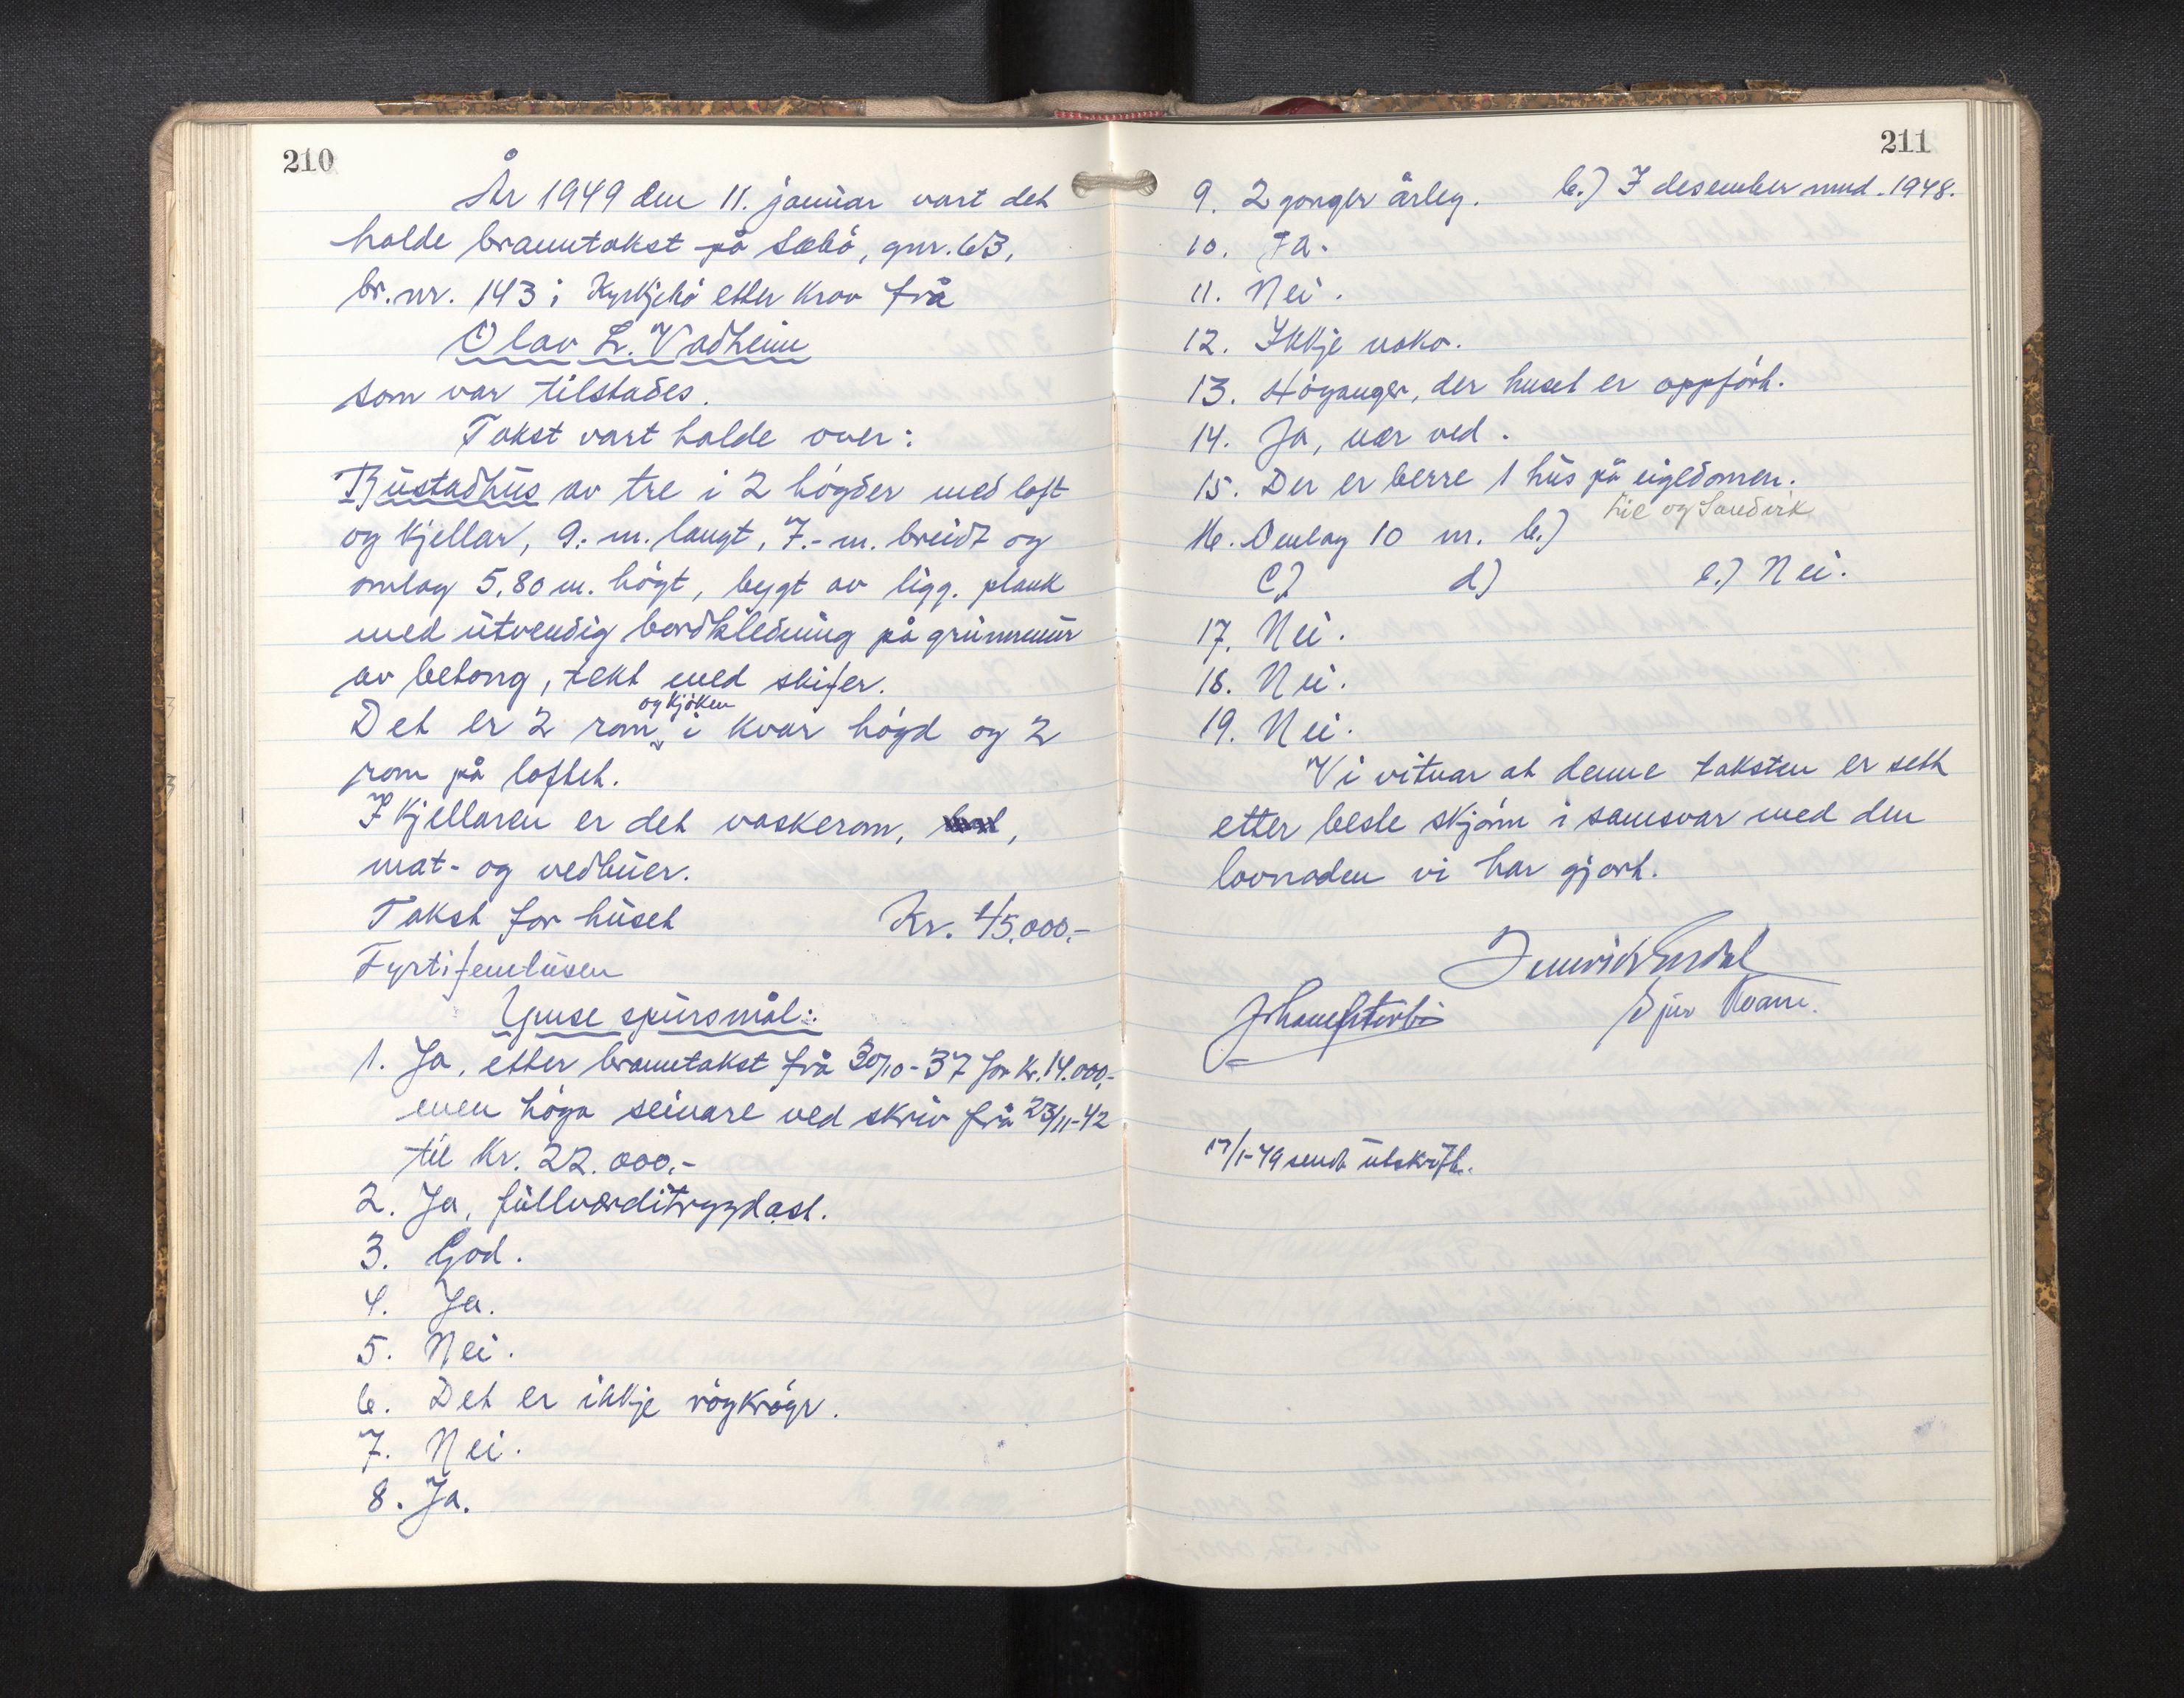 210
År 1949 den 11. januar vart det
halde branntakst på Sæbö, gnr. 63,
br.nr. 143 i Kyrkjebö etter krav frå
Olav L. Vadheim
som var tilstades.
Takst vart halde over:
Bustadhus av tre i 2 högder med loft
og kjellar, 9.- m. langt, 7.- m. breidt og
omlag 5,80 m. högt, bygt av ligg. plank
med utvendig bordkledning på grunnmur
av betong, tekt med skifer.
og kjöken
Det er 2 rom i kvar högd og 2
rom på loftet.
I kjellaren er det vaskerom, ,
mat- og vedbuer.
Takst for huset Kr. 45.000.-
Fyrtifemtusen
Ymse spursmål:
1. Ja, etter branntakst frå 30/10-37 for kr. 14.000,-
men höga seinare ved skriv frå 23/11-42
til kr. 22.000.-
2. Ja, fullverditrygdast.
3. God.
4. Ja.
5. Nei.
6. Det er ikkje rögkrögr.
7. Nei.
8. Ja.
211
9. 2 gonger årleg. b.) I desember mnd. 1948.
10. Ja.
11. Nei.
12. Ikkje noko.
13. Höyanger, der huset er oppfört.
14. Ja, nær ved.
15. Der er berre 1 hus på eigedomen.
Lie og Sandvik
16. Omlag 10 m. b.)
c) d) e.) Nei.
17. Nei.
18. Nei.
19. Nei.
Vi vitnar at denne taksten er sett
etter beste skjönn i samsvar med den
lovnaden vi har gjort.
Sjur Kvamme
17/1-49 sendt utskrift.